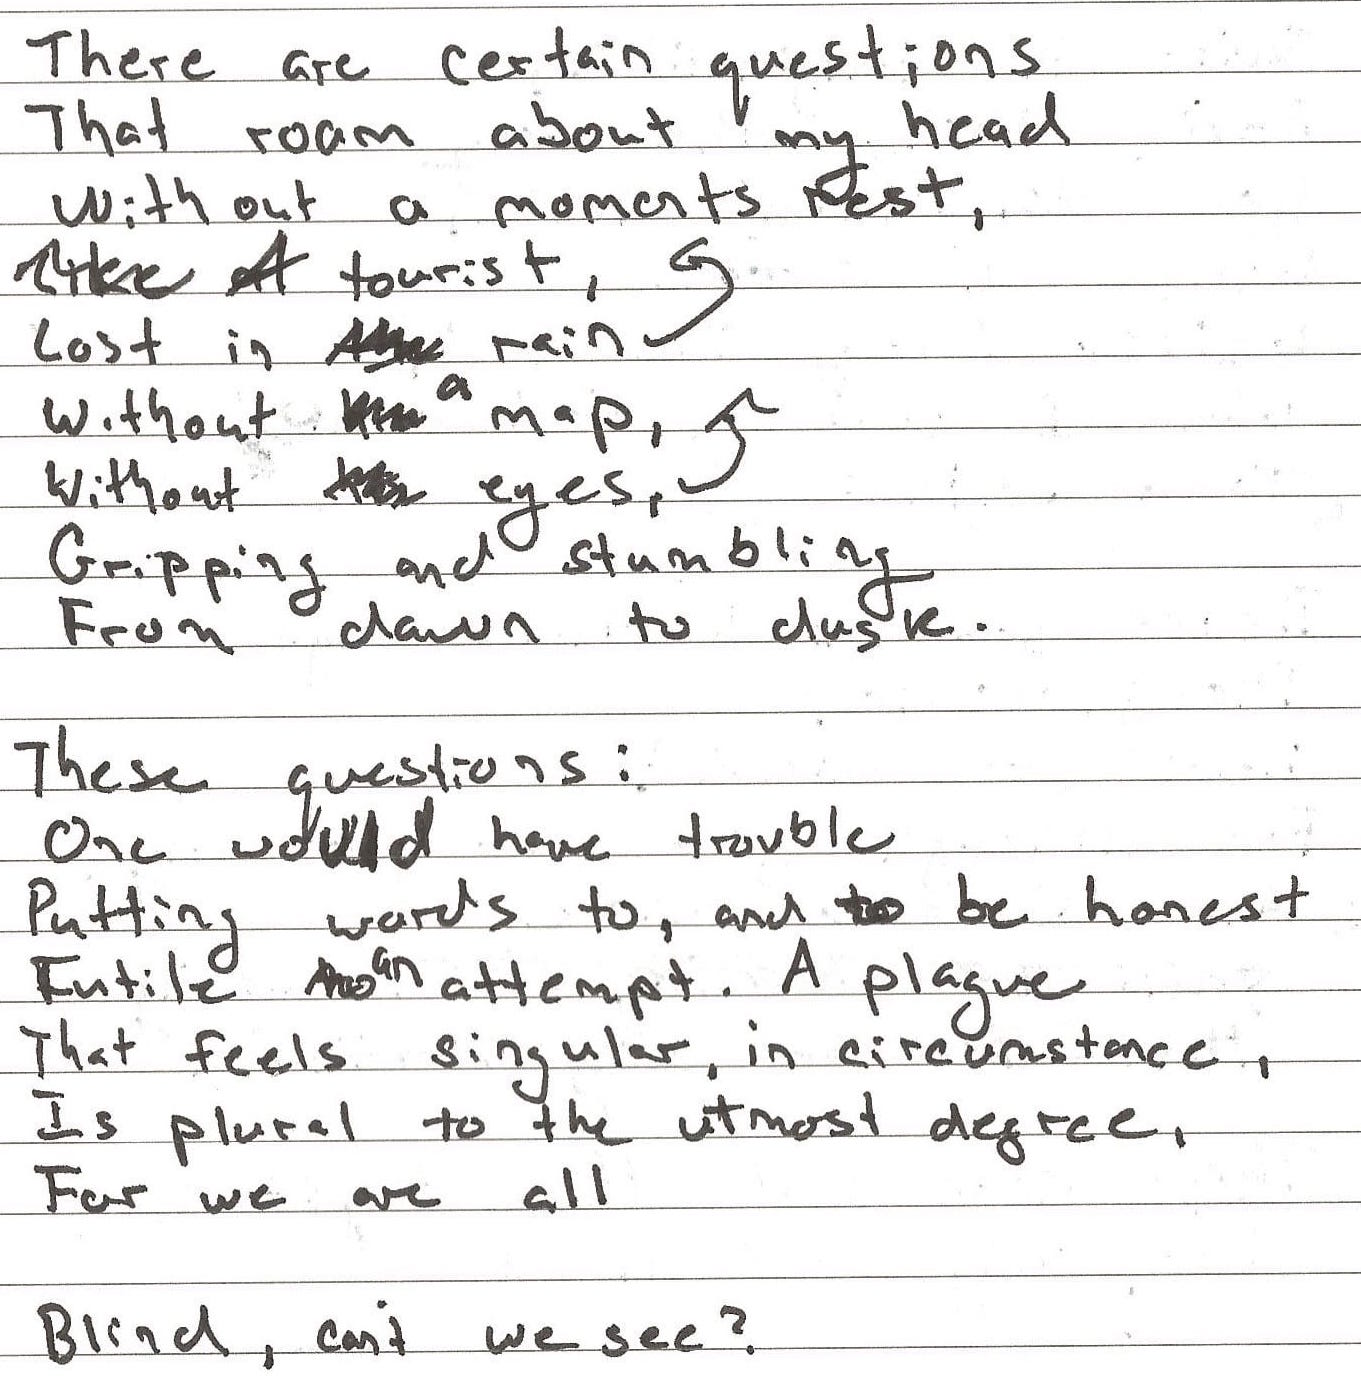 There are certain questions
That roam about my head
Without a moments rest,
A tourist,
Lost in rain
Without a map,
Without eyes,
Gripping and stumbling
From dawn to dusk.
These questions:
One would have trouble
Putting words to, and to be honest
Futile an attempt. A plague
That feels singular, in circumstance,
Is plural to the utmost degree,
For we are all
Blind, can't we see?